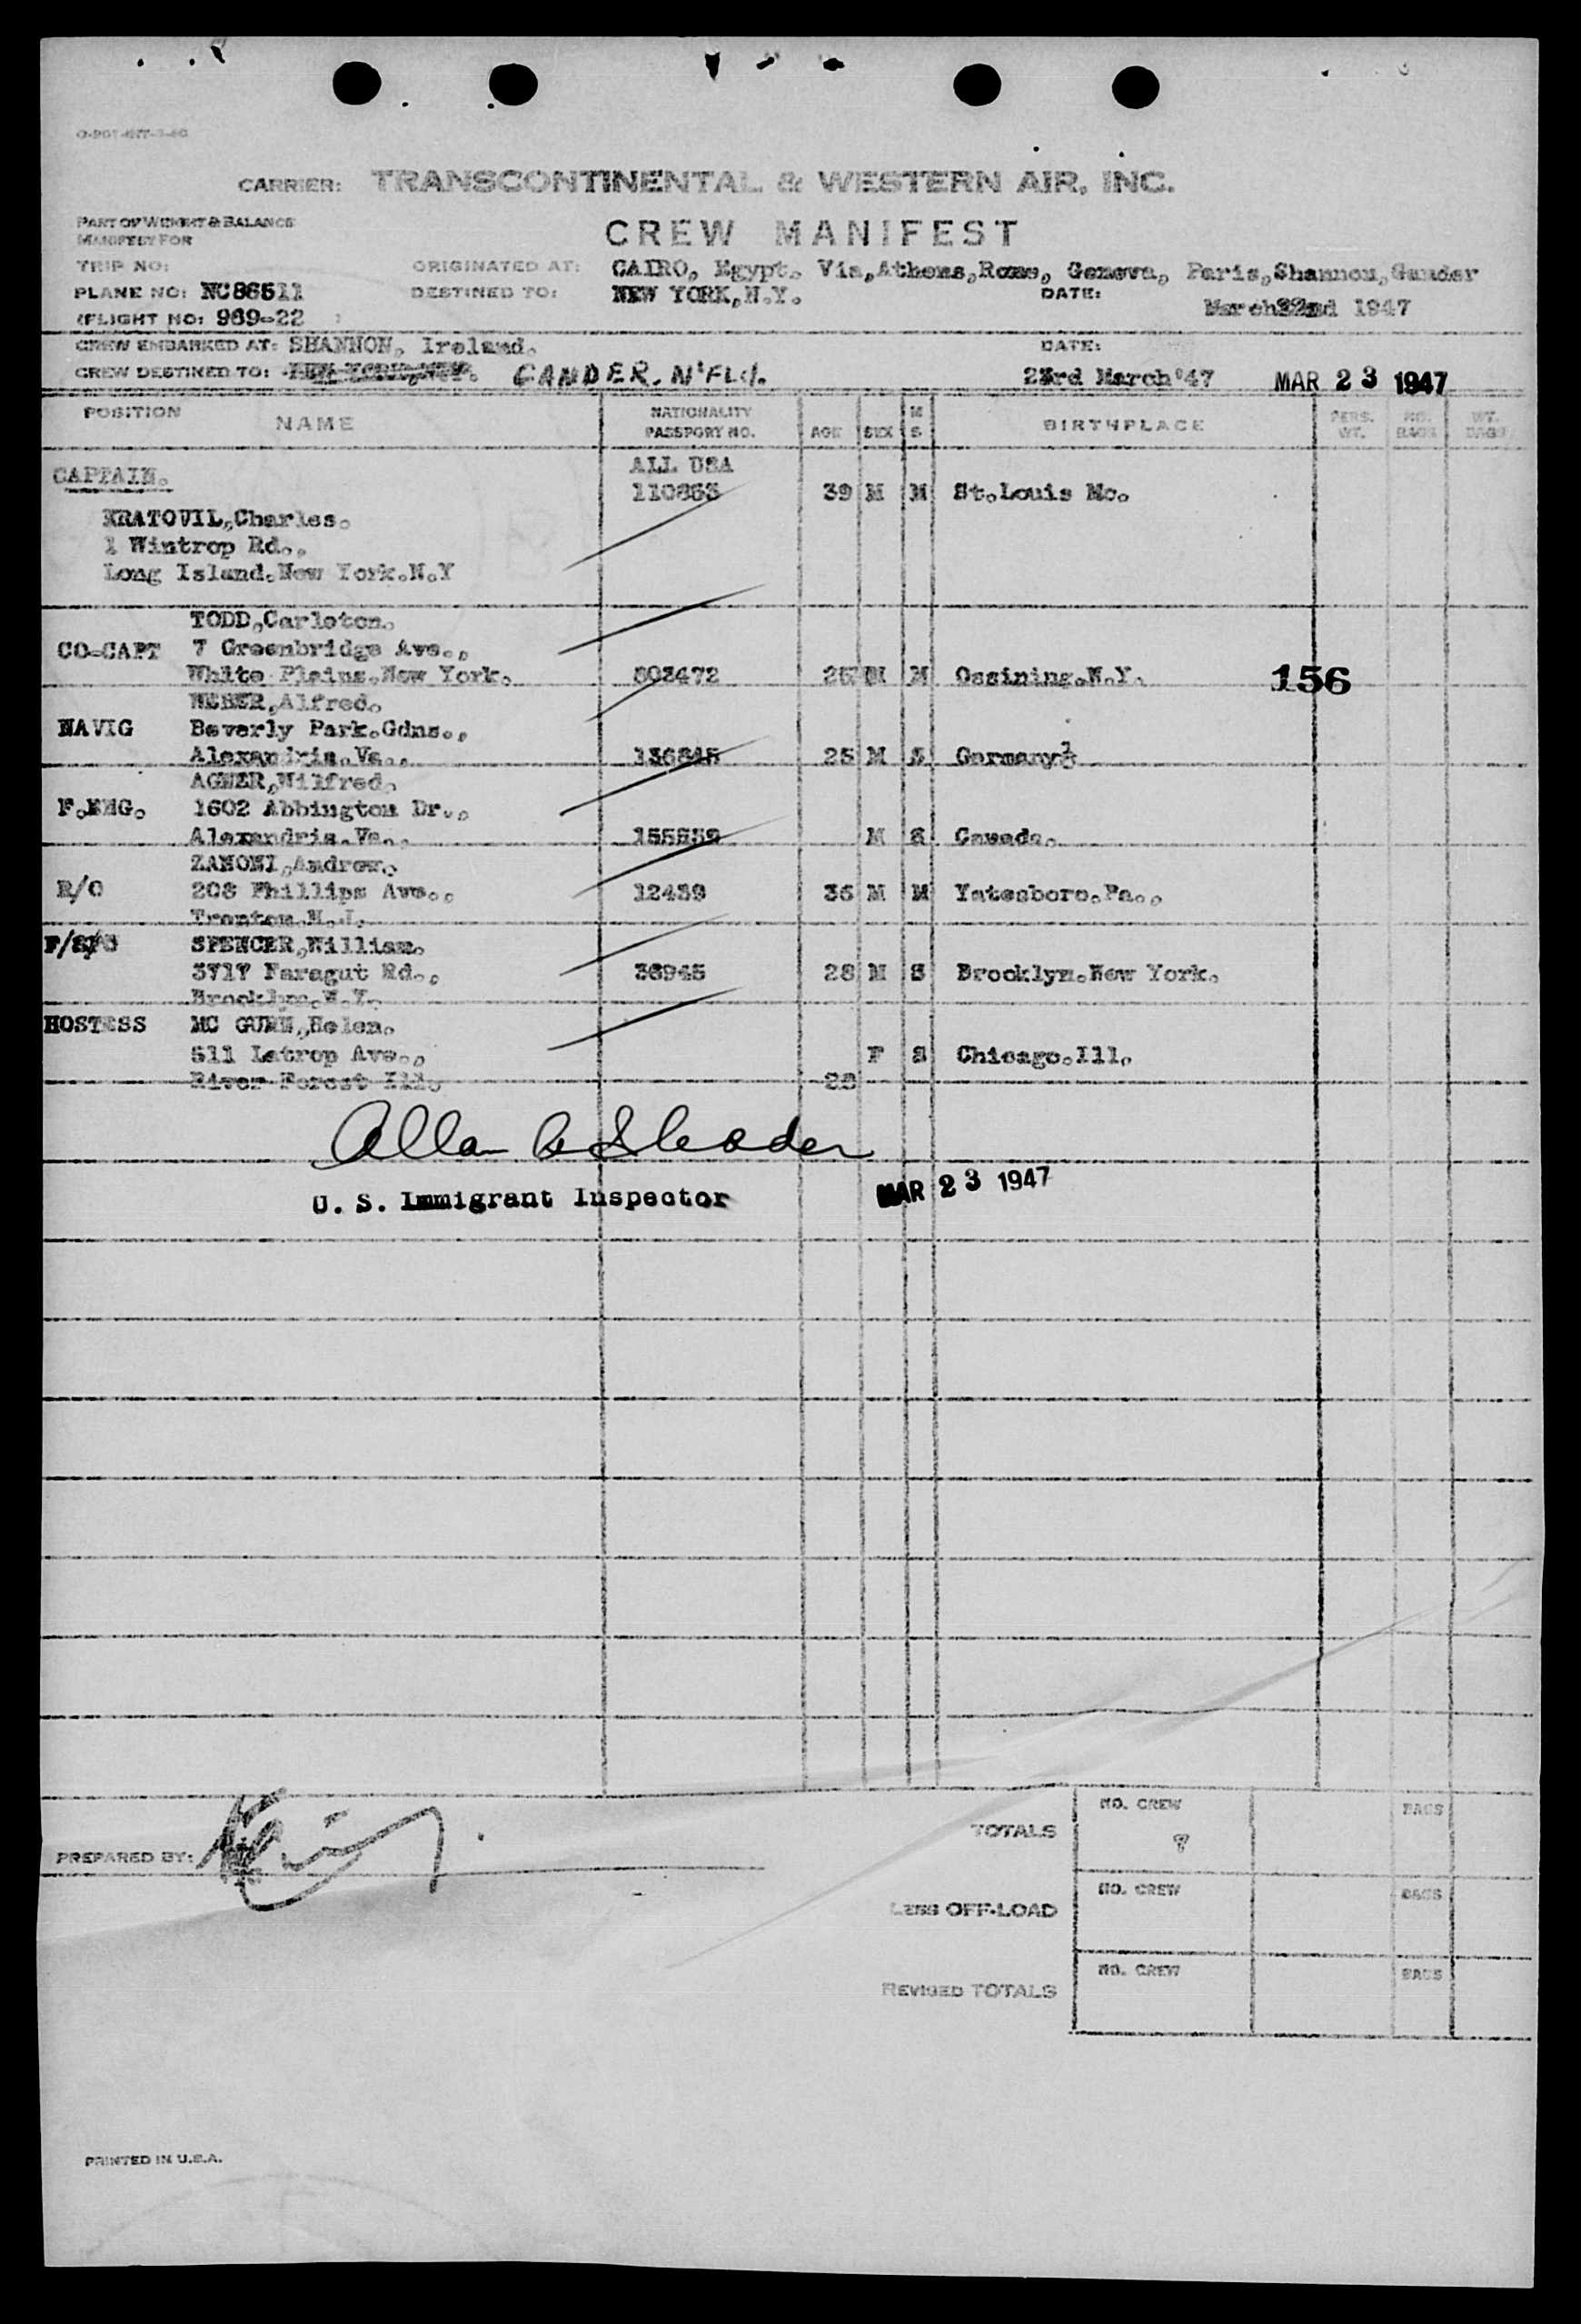 CARRIER: TRANSCONTINENTAL & WESTERN AIR, INC.
PART OF WEIGHT & BALANCE
MANIFEST FOR
CREW MANIFEST
TRIP NO:
ORIGINATED AT: CAIRO, Egypt. Via,Athens,Rome, Geneva, Paris,Shannon,Gander
PLANE NO: NC86511
DESTINED TO: NEW YORK,N.Y.
DATE: March 22nd 1947
(FLIGHT NO: 969-22 )
CREW EMBARKED AT: SHANNON, Ireland.
DATE:
CREW DESTINED TO: NEW YORK, GANDER. N'FLd.
23rd March'47 MAR 23 1947
POSITION NAME NATIONALITY PASSPORT NO. AGE SEX M S BIRTHPLACE PERS. WT. NO. BAGS WT. BAGS
ALL USA
CAPTAIN. 110863 39 M M St.Louis Mo.
KRATOVIL,Charles.
1 Wintrop Rd..
Long Island.New York.N.Y
TODD,Carleton.
CO-CAPT 7 Greenbridge Ave.,
White Plains.New York. 303472 M M Ossining.N.Y. 156
WEBER,Alfred.
NAVIG Beverly Park.Gdns.,
Alexandria.Va., 136845 25 M S Germany
AGNER,Wilfred.
F.ENG. 1602 Abbington Dr.,
Alexandria.Va., M S Canada.
ZANONI,Andrew.
R/O 208 Phillips Ave., 12439 36 M M Yatesboro.Pa.,
Trenton.N.J.
SPENCER,William.
3717 Faragut Rd., 36945 28 M S Brooklyn.New York.
Brooklyn.N.Y.
HOSTESS MC GUNN,Helen.
511 Latrop Ave., F S Chicago.Ill.
River Forest Ill. 28
U. S. Immigrant Inspector MAR 23 1947
TOTALS NO. CREW 7 BAGS
PREPARED BY:
LESS OFF-LOAD NO. CREW BAGS
REVISED TOTALS NO. CREW BAGS
PRINTED IN U.S.A.